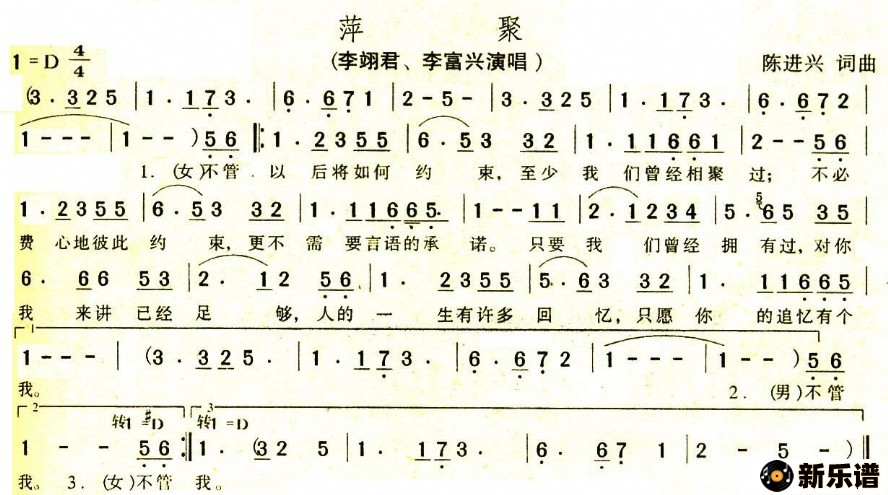 萍 聚
(李翊君、李富兴演唱)
1=D 4/4
陈进兴 词曲
(3. 325 | 1. 173. | 6. 671 | 2-5- | 3. 325. | 1. 173. | 6. 672 |
1--- | 1--)56 |: 1. 2355 | 6. 53 32 | 1. 11661 | 2--56 |
1. (女)不管 以 后将如何 约 束,至少 我 们曾经相聚 过; 不必
1. 2355 | 6. 53 32 | 1. 11665. | 1--11 | 2. 1234 | 5. 65 35 |
费 心地彼此 约 束,更不 需 要言语的承 诺。只要 我 们曾经 拥 有过,对你
6. 66 53 | 2. 12 56 | 1. 2355 | 5. 63 32 | 1. 11665 |
我 来讲 已经 足 够,人的 一 生有许多 回 忆,只愿 你 的追忆有个
1
1--- | (3. 325. | 1. 173. | 6. 672 | 1--- | 1--)56 |
我。 2. (男)不管
2 转1=#D 3 转1=D
1 - - 56 :| 1. (32 5 | 1. 173. | 6. 67 1 | 2 - 5 -) ||
我。 3. (女)不管 我。
新乐谱